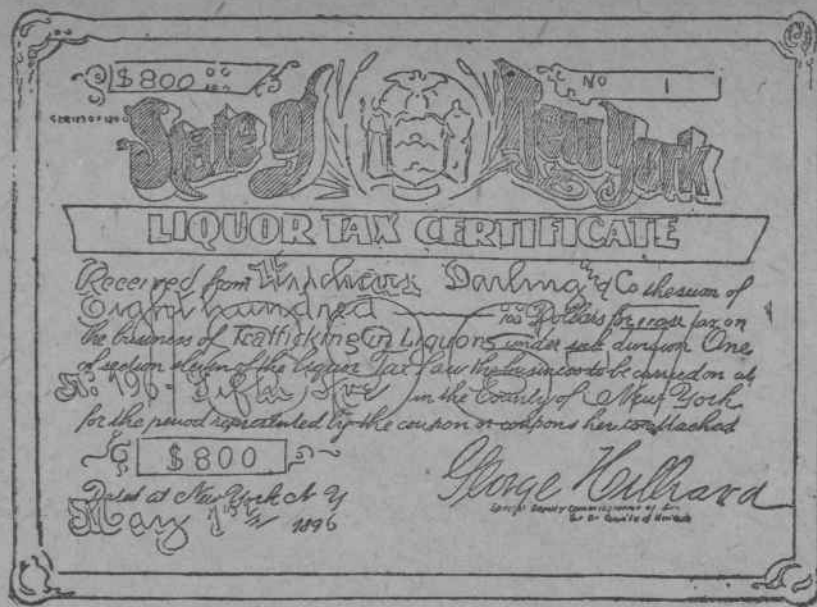 $800 00/100
NO 1
SERIES OF 1896
State of New York
LIQUOR TAX CERTIFICATE
Received from Darling and Co the sum of
Eight hundred 00/100 Dollars for excise tax on
the business of Trafficking in Liquors under sub division One
of section eleven of the Liquor Tax Law the business to be carried on at
No. 196 - Fifth Ave in the County of New York
for the period represented by the coupon or coupons hereto attached
$800
Dated at New York N Y
May 1st 1896
George Hilliard
Special Deputy Commissioner of